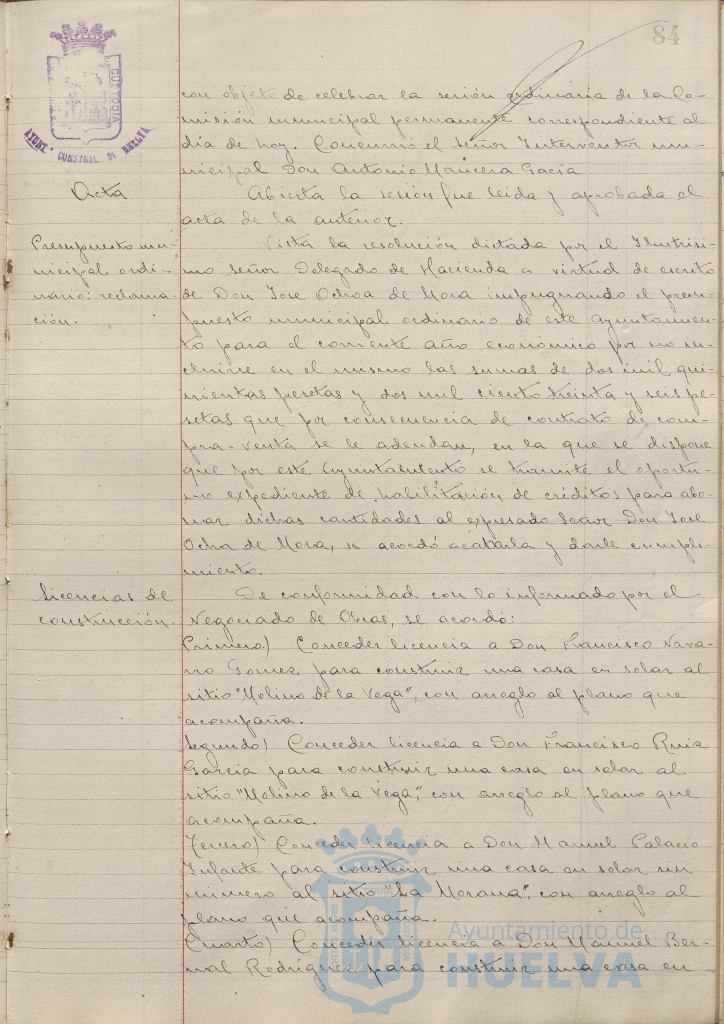 84
PORTUS MARIS ET TERRE CUSTODIA
AYUNT. CONSTNAL. DE HUELVA
con objeto de celebrar la sesión ordinaria de la Co-
misión municipal permanente correspondiente al
día de hoy. Concurrió el Señor Interventor mu-
nicipal Don Antonio Mancera Gacia
Acta
Abierta la sesión fue leida y aprobada el
acta de la anterior.
Presupuesto mu-
nicipal ordi-
nario: reclama-
ción.
Vista la resolución dictada por el Ilustrisi-
mo Señor Delegado de Hacienda a virtud de escrito
de Don Jose Ochoa de Mora impugnando el presu-
puesto municipal ordinario de este Ayuntamien-
to para el corriente año economico por no in-
cluirse en el mismo las sumas de dos mil qui-
nientas pesetas y dos mil ciento treinta y seis pe-
setas que por consecuencia de contrato de com-
pra-venta se le adeudan, en la que se dispone
que por este Ayuntamiento se tramite el oportu-
no expediente de habilitación de créditos para abo-
nar dichas cantidades al expresado Señor Don Jose
Ocha de Mora, se acordó acatarla y darle cumpli-
miento.
Licencias de
construcción.
De conformidad con lo informado por el
Negociado de Obras, se acordó:
Primero) Conceder licencia a Don Francisco Nava-
rro Gomez para construir una casa en solar al
sitio "Molino de la Vega", con arreglo al plano que
acompaña.
Segundo) Conceder licencia a Don Francisco Ruiz
Garcia para construir una casa en solar al
sitio "Molino de la Vega", con arreglo al plano que
acompaña.
Tercero) Conceder licencia a Don Manuel Palacio
Infante para construir una casa en solar sin
número al sitio "La Morana", con arreglo al
plano que acompaña.
Cuarto) Conceder licencia a Don Manuel Ber-
nal Rodriguez para construir una casa en
Ayuntamiento de
HUELVA